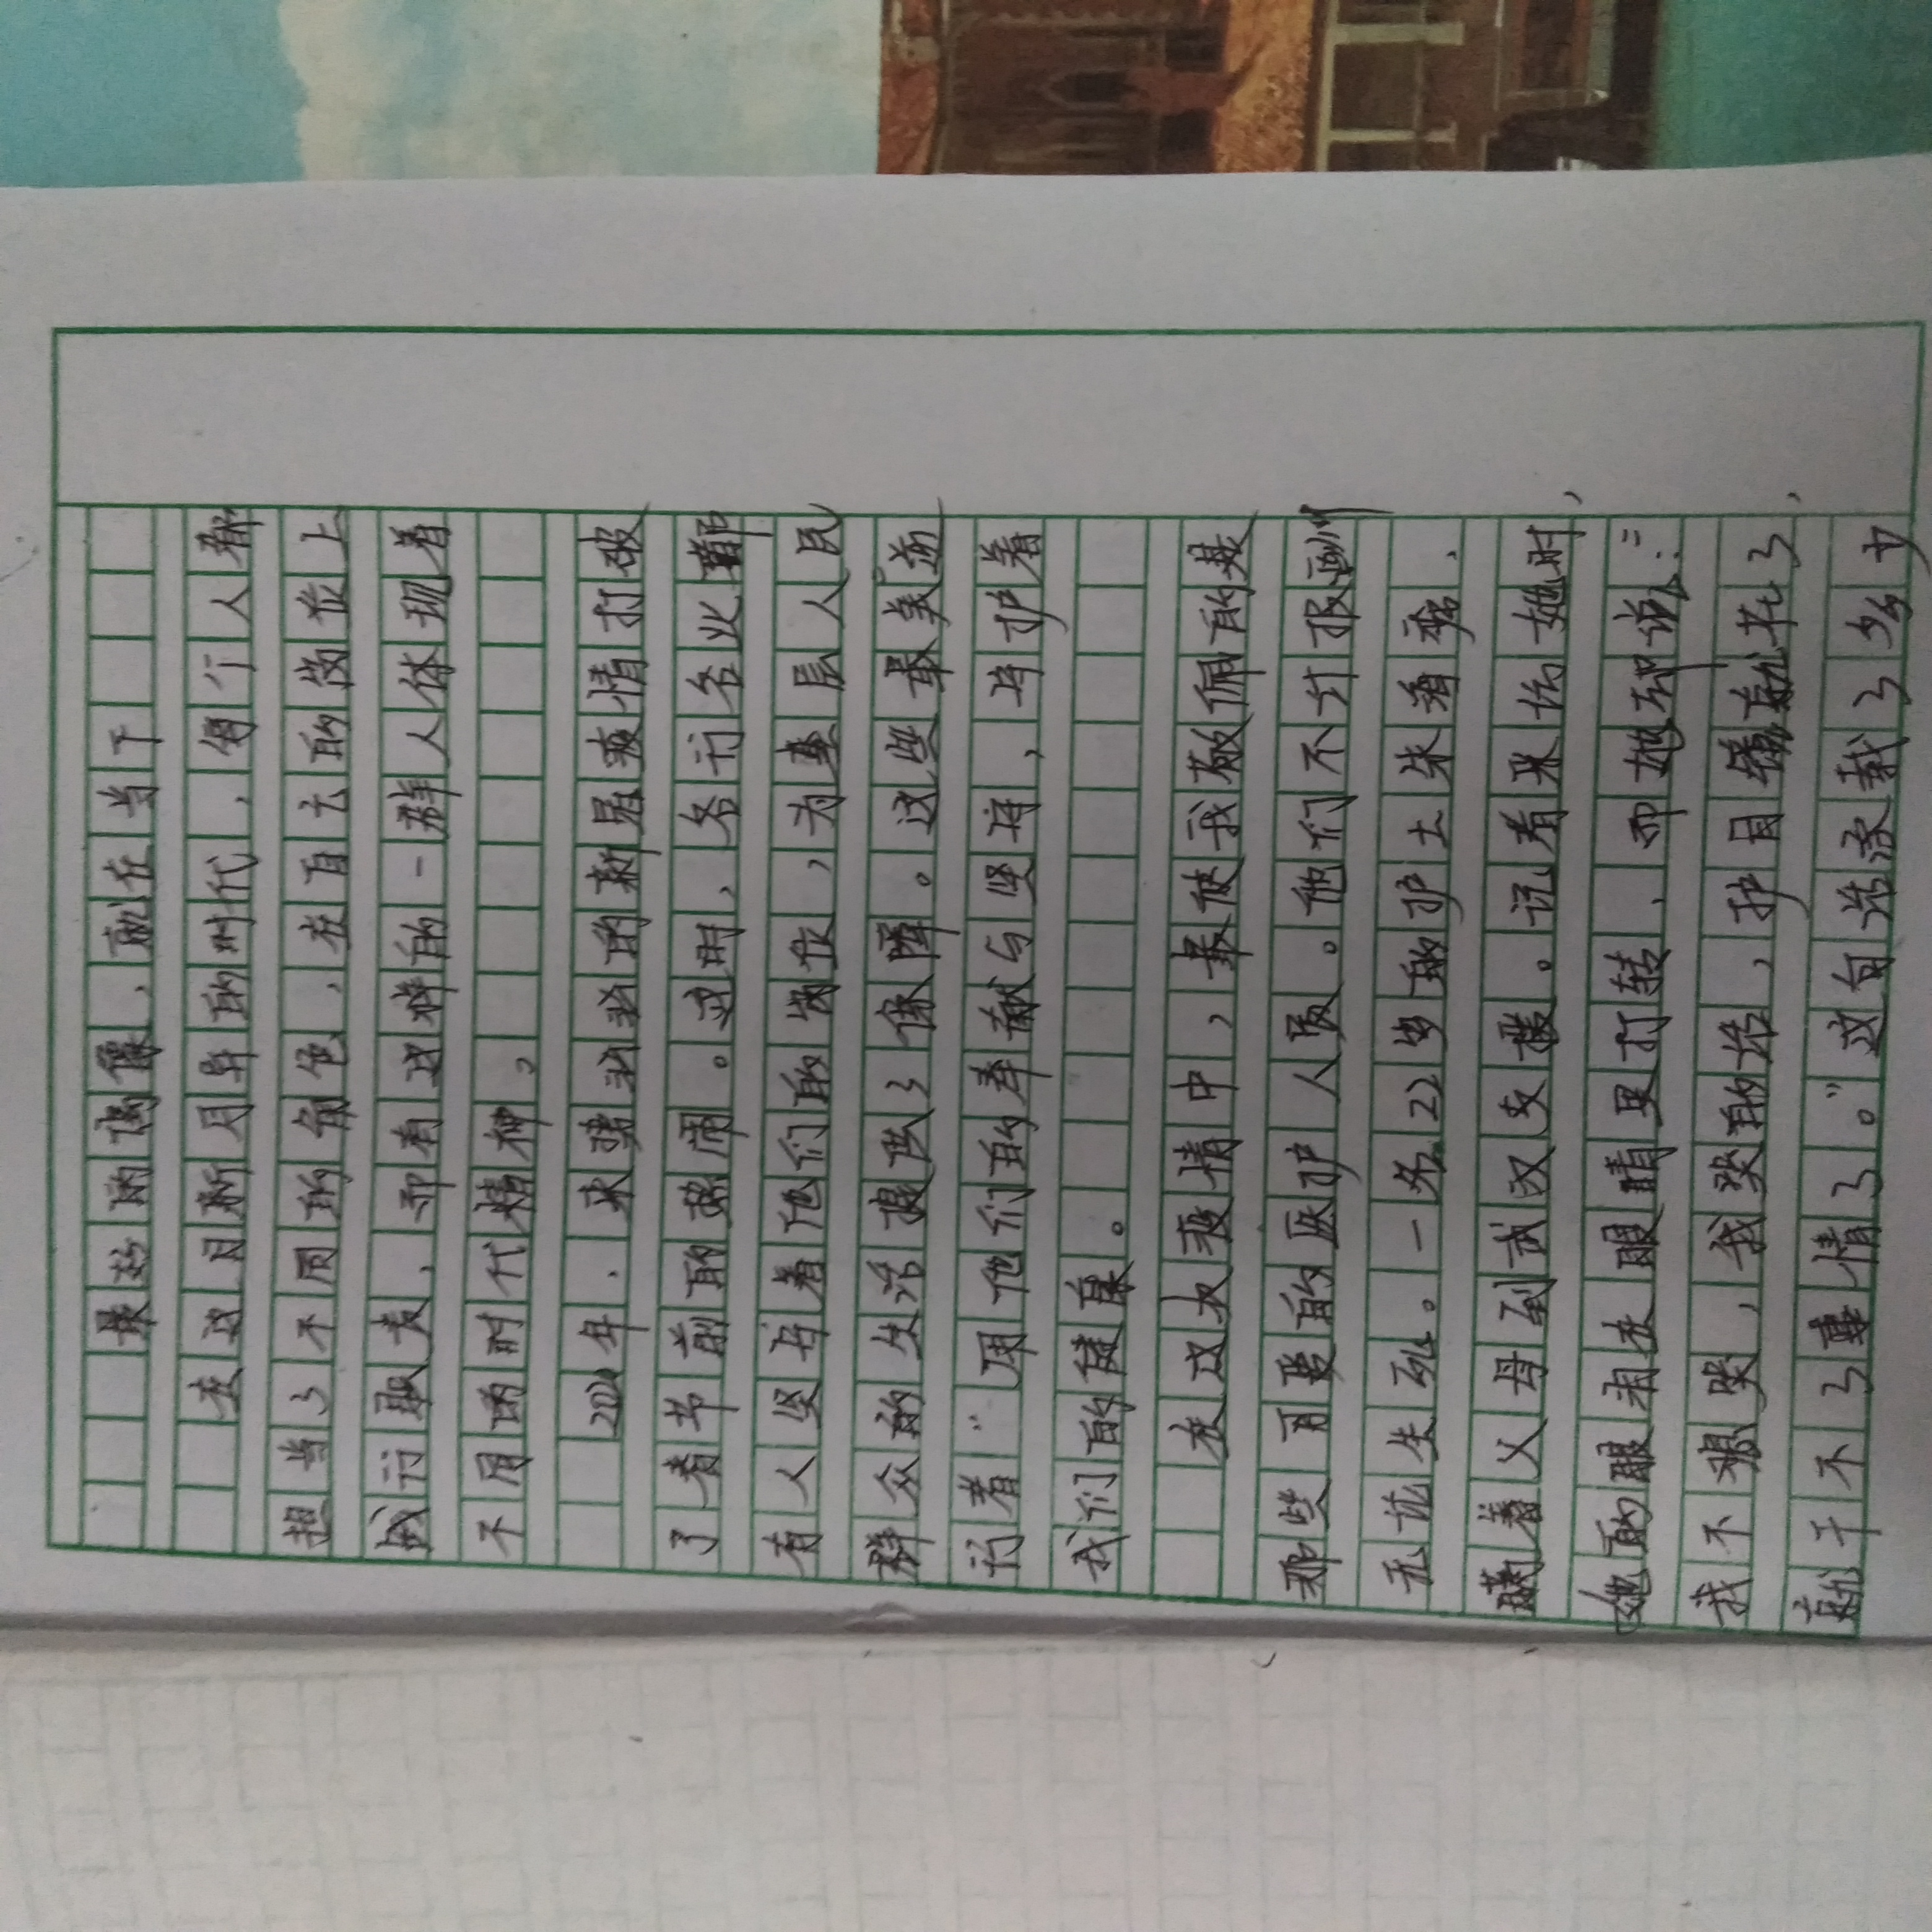 最好的偶像，就在当下
在这日新月异的时代，每个人都
担当了不同的角色，在百云的岗位上
我们聚光，却有这样的一群人体现着
不同的时代精神，
2020年，来势汹汹的新冠疫情打破
了春节前的热闹。这时，各行各业都
有人坚守着他们的岗位，为基层人民
群众的生活提供了保障。这些最美逆
行者”用他们的奉献与坚持，守护着
我们的健康。
在这次疫情中，最使我敬佩的是
那些可爱的医护人员。他们不计报酬，
无论生死。一名22岁的护士朱海秀，
瞒着父母到武汉支援。记者采访她时，
她的眼泪在眼睛里打转，而她却说：“
我不想哭，我哭的话，护目镜就花了，
就干不了事情了。”这句话承载了多少